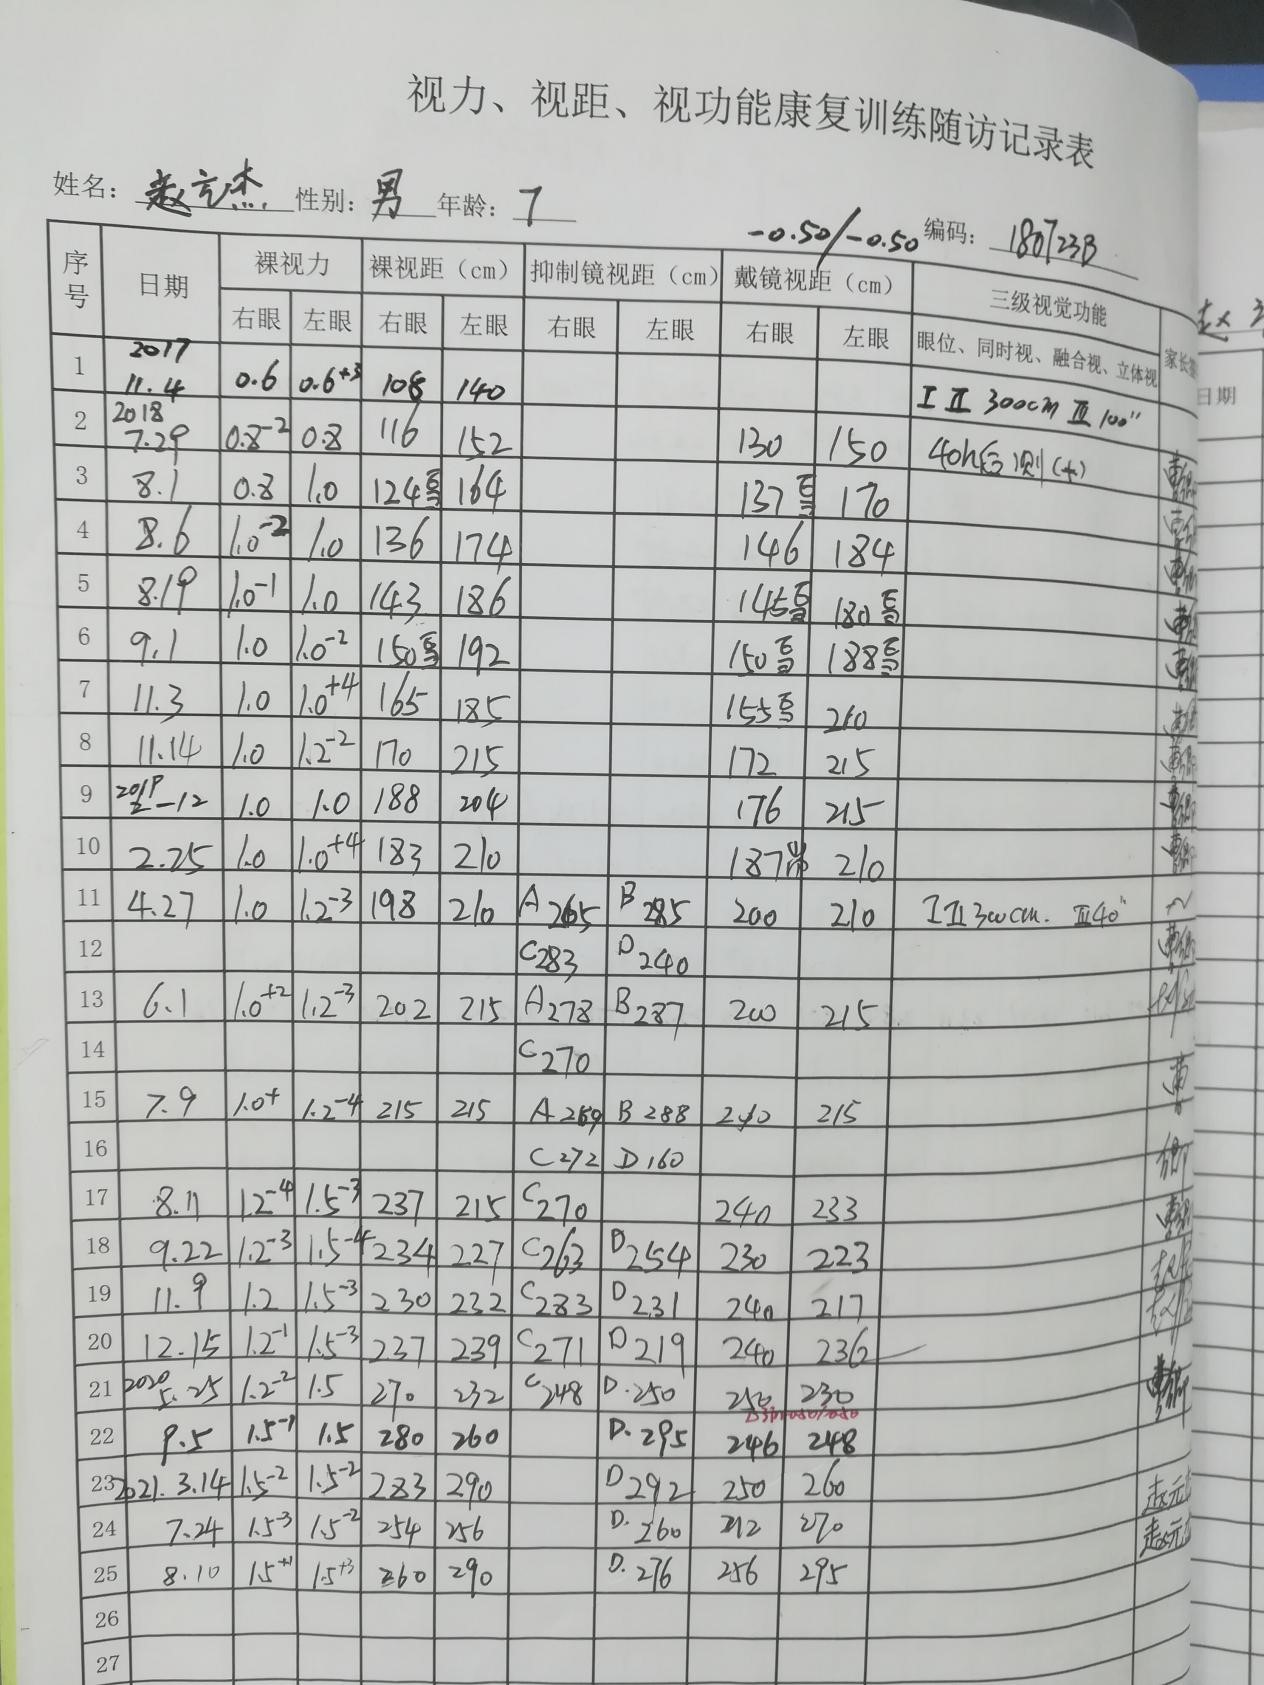 视力、视距、视功能康复训练随访记录表
姓名： 性别：男 年龄：7 编码：180723B
-0.50/-0.50
序号 日期 裸视力 裸视距（cm） 抑制镜视距（cm） 戴镜视距（cm） 三级视觉功能
右眼 左眼 右眼 左眼 右眼 左眼 右眼 左眼 眼位、同时视、融合视、立体视 家长
1 2017 11.4 0.6 0.6+3 108 140 I II 300cm III 100"
2 2018 7.29 0.8-2 0.8 116 152 130 150 40h
3 8.1 0.8 1.0 124 164 137 170
4 8.6 1.0-2 1.0 136 174 146 184
5 8.19 1.0-1 1.0 143 186 145 180
6 9.1 1.0 1.0-2 150 192 150 188
7 11.3 1.0 1.0+4 165 185 155 210
8 11.14 1.0 1.2-2 170 215 172 215
9 2019 2-12 1.0 1.0 188 204 176 215
10 2.25 1.0 1.0+4 183 210 187 210
11 4.27 1.0 1.2-3 198 210 A 265 B 285 200 210 I II 300cm. III 40"
12 C283 D240
13 6.1 1.0+2 1.2-3 202 215 A278 B287 200 215
14 C270
15 7.9 1.0+ 1.2-4 215 215 A 269 B 288 210 215
16 C272 D160
17 8.11 1.2-4 1.5-3 237 215 C270 240 233
18 9.22 1.2-3 1.5-4 234 227 C263 D254 230 223
19 11.9 1.2 1.5-3 230 232 C283 D231 240 217
20 12.15 1.2-1 1.5-3 237 239 C271 D219 240 236
21 2020 5.25 1.2-2 1.5 270 232 C248 D.250 250 230
22 9.5 1.5-1 1.5 280 260 D.295 246 248
23 2021.3.14 1.5-2 1.5-2 283 290 D292 250 260
24 7.24 1.5-3 1.5-2 254 256 D.260 212 270
25 8.10 1.5+1 1.5+3 260 290 D.276 256 295
26
27
日期